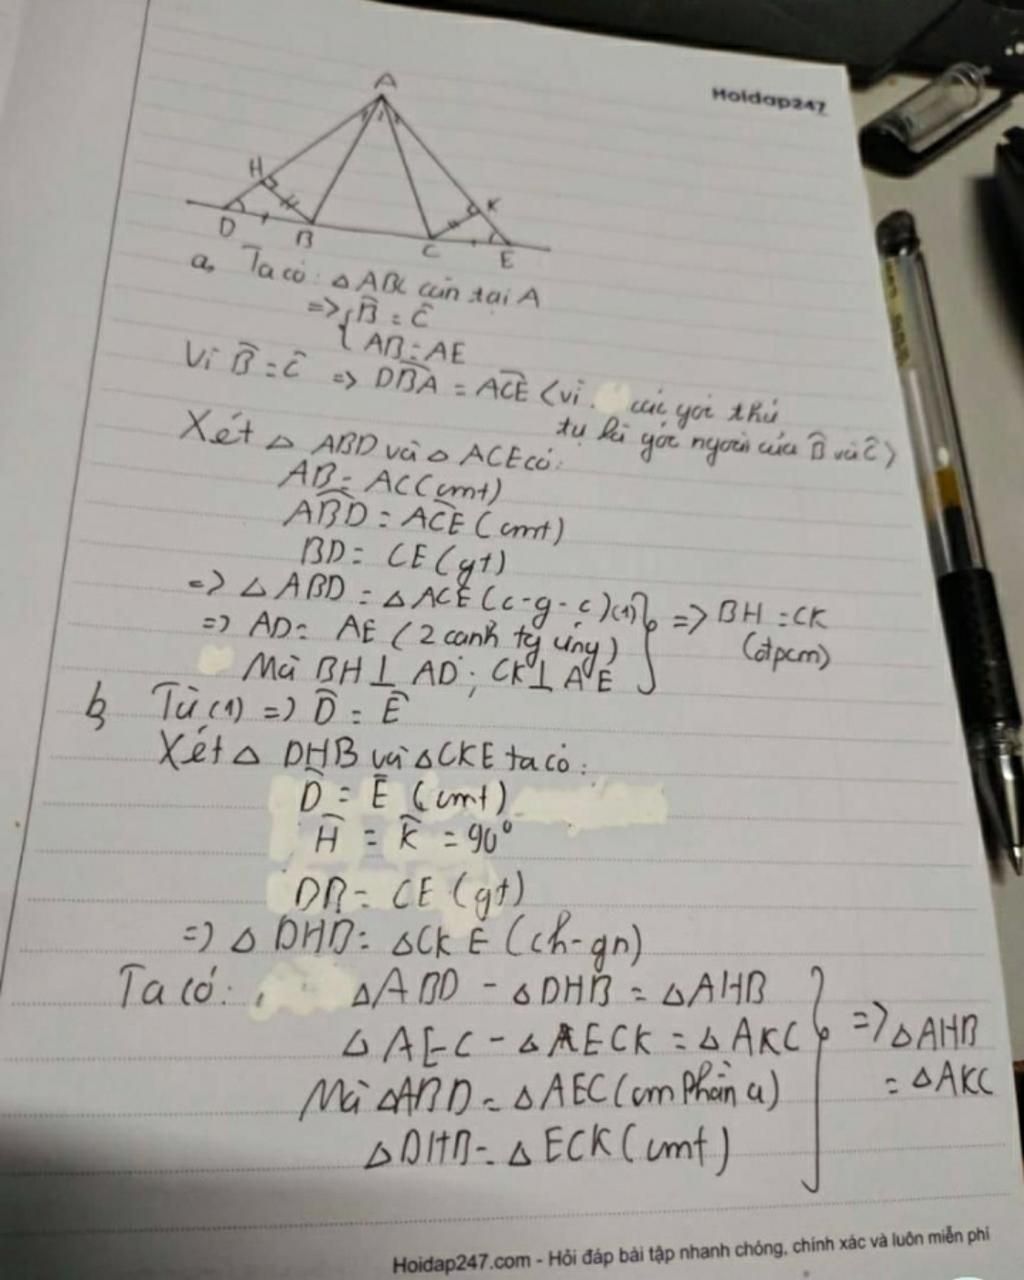 Hoidap247
A
H
K
D
B
C
E
a, Ta có: △ABC cân tại A
=> { B̂ = Ĉ
AB = AE
Vì B̂ = Ĉ => DBA = ACE (vì các góc thứ
tự là góc ngoài của B̂ và Ĉ)
Xét △ ABD và △ ACE có:
AB = AC (cmt)
ABD = ACE (cmt)
BD = CE (gt)
=> △ ABD = △ ACE (c-g-c) (1) } => BH = CK
=> AD = AE (2 cạnh tg ứng) (đpcm)
Mà BH ⊥ AD ; CK ⊥ AE
b, Từ (1) => D̂ = Ê
Xét △ DHB và △CKE ta có:
D̂ = Ê (cmt)
Ĥ = K̂ = 90°
DB = CE (gt)
=> △ DHB = △CKE (ch-gn)
Ta có: △ABD - △DHB = △AHB
△ AEC - △ AECK = △ AKC } => △AHB
Mà △ABD = △AEC (cm phần a) = △AKC
△DHB = △ ECK (cmt)
Hoidap247.com - Hỏi đáp bài tập nhanh chóng, chính xác và luôn miễn phí